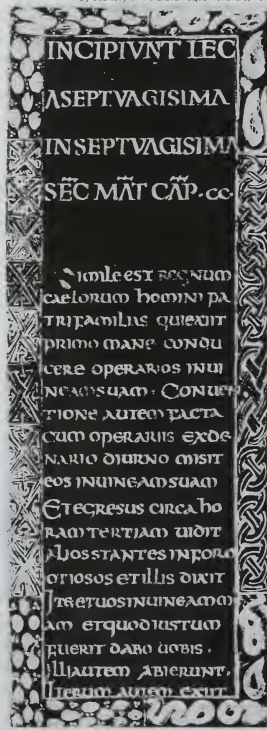 INCIPIUNT LEC
A SEPTVAGISIMA
IN SEPTVAGISIMA
SEC MAT CAP. cc.
Simile est regnum
caelorum homini pa
trifamilias qui exiit
primo mane condu
cere operarios in ui
neam suam. Conuen
tione autem facta
cum operariis ex de
nario diurno misit
eos in uineam suam
Et egresus circa ho
ram tertiam uidit
alios stantes in foro
otiosos et illis dixit
Ite et uos in uineam m
am et quod iustum
fuerit dabo uobis.
Illi autem abierunt.
Iterum autem exiit